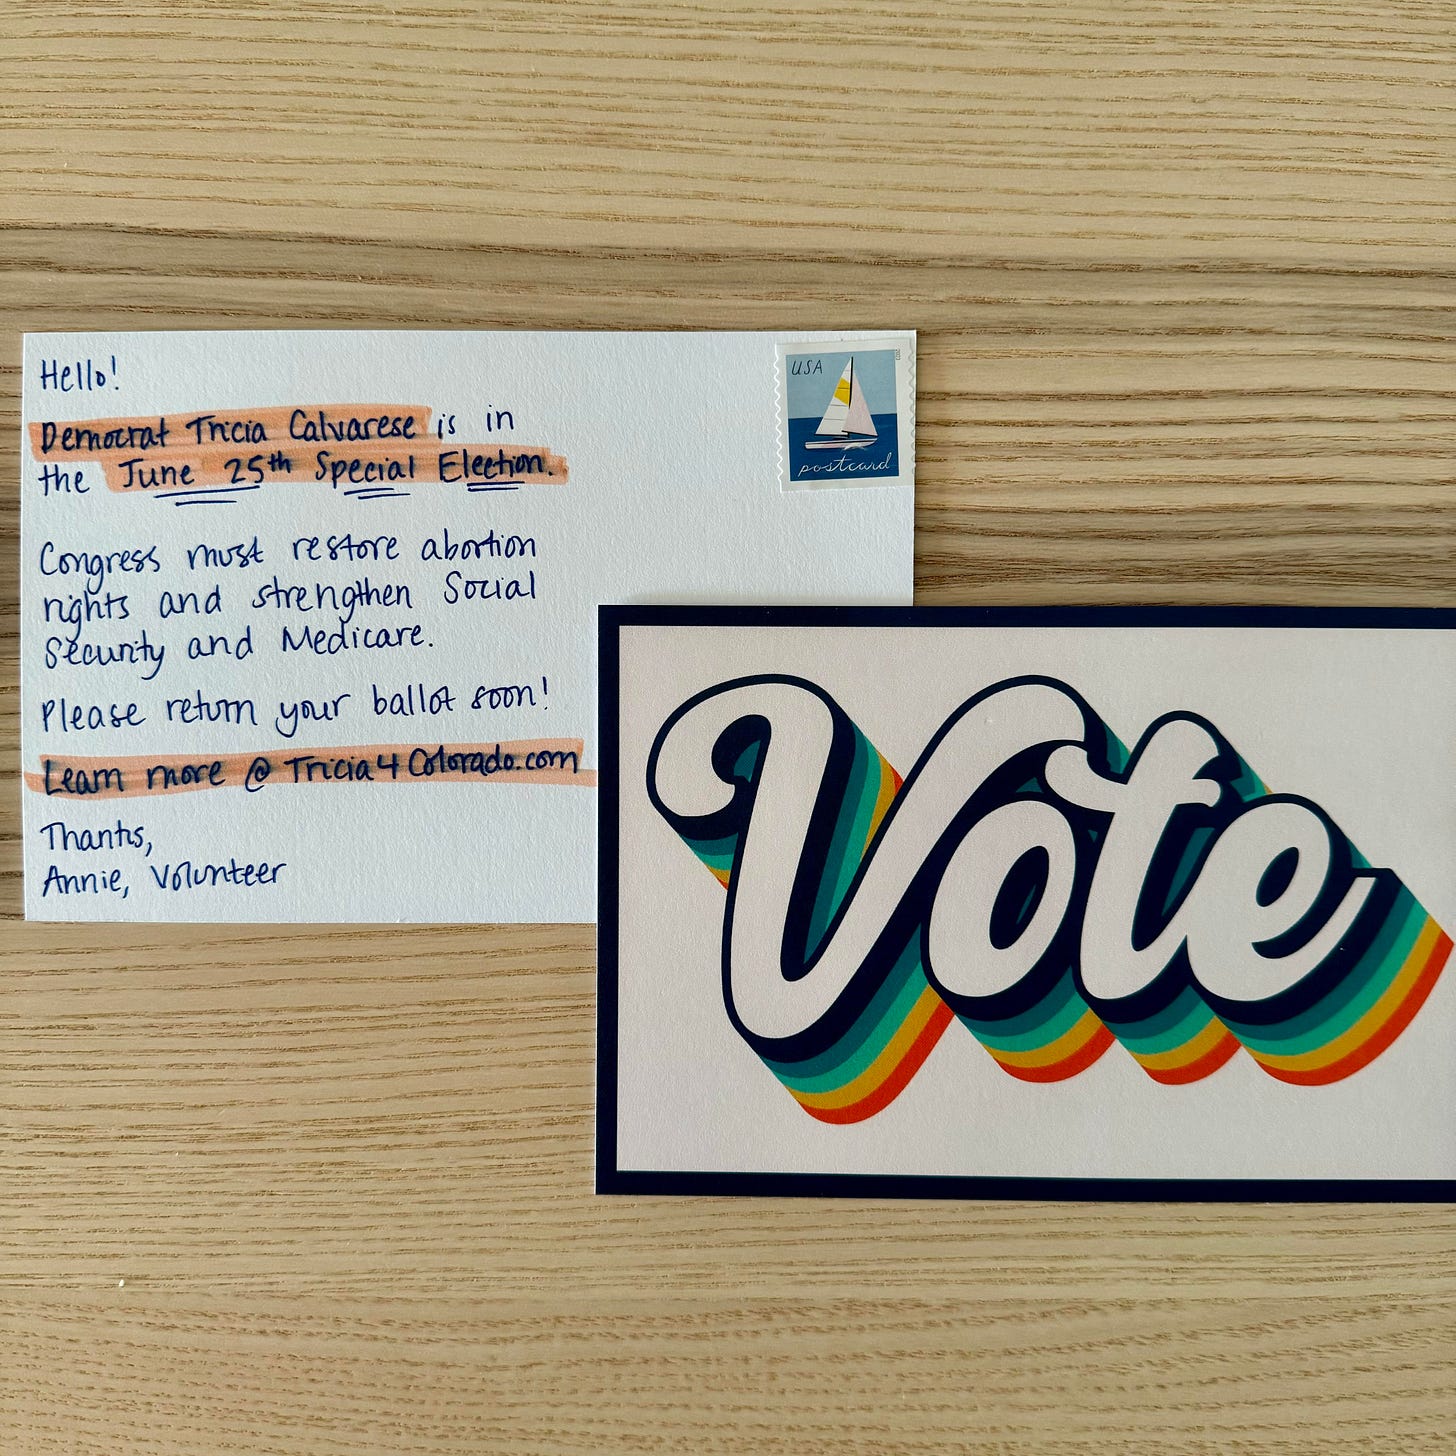 Hello!
Democrat Tricia Calvarese is in
the June 25th Special Election.
Congress must restore abortion
rights and strengthen Social
Security and Medicare.
Please return your ballot soon!
Learn more @ Tricia4Colorado.com
Thanks,
Annie, Volunteer
USA
2023
postcard
Vote